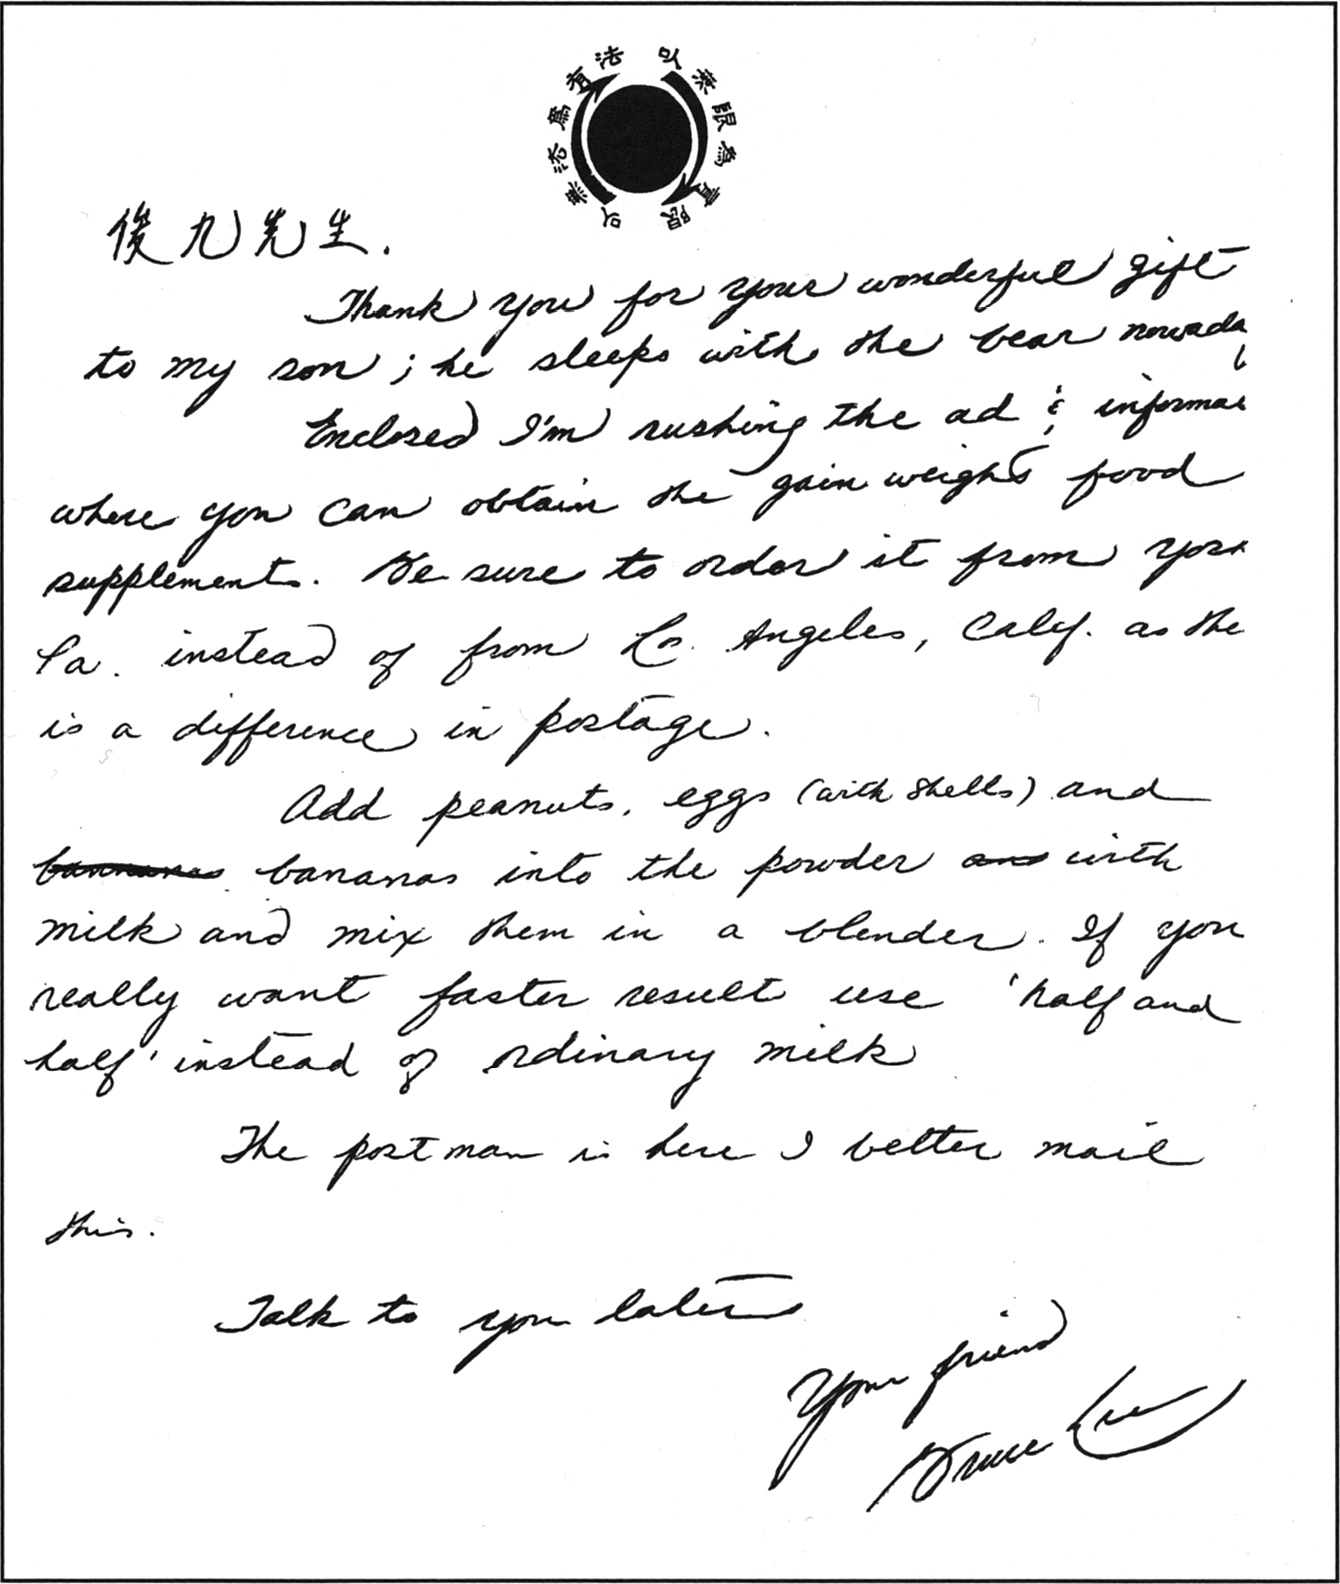 以無法為有法
以無限為有限
俊九先生.
Thank you for your wonderful gift
to my son; he sleeps with the bear nowada
Enclosed I'm rushing the ad & informa
where you can obtain the gain weight food
supplements. Be sure to order it from York
Pa. instead of from Los Angeles, Calif. as the
is a difference in postage.
Add peanuts, eggs (with shells) and
bannanas bananas into the powder and with
milk and mix them in a blender. If you
really want faster result use 'half and
half' instead of ordinary milk
The postman is here I better mail
this.
Talk to you later
Your friend
Bruce Lee